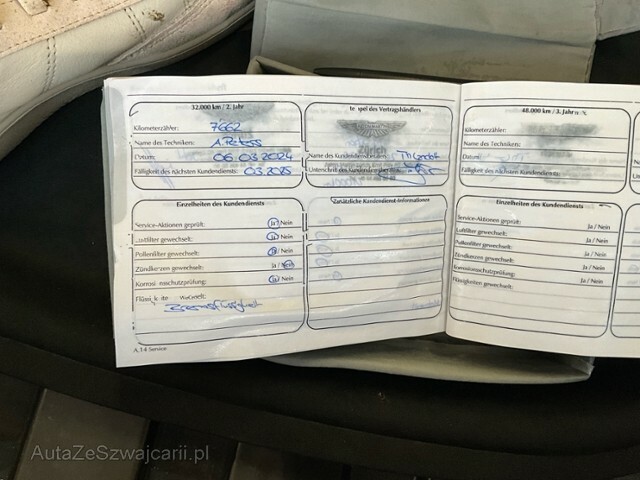 32.000 km / 2. Jahr
Kilometerzähler: 7662
Name des Technikers:
Datum: 06.03.2024
Fälligkeit des nächsten Kundendiensts: 03.2025
des Vertragshändlers
Zürich
Name des Kundendienstberaters:
Unterschrift des
48.000 km / 3. Jahr
Kilometerzähler:
Name des Technikers:
Datum:
Fälligkeit des nächsten Kundendiensts:
Einzelheiten des Kundendiensts
Service-Aktionen geprüft: Ja / Nein
Luftfilter gewechselt: Ja / Nein
Pollenfilter gewechselt: Ja / Nein
Zündkerzen gewechselt: Ja / Nein
Nein
Bremsflüssigkeit
Zusätzliche Kundendienst-Informationen
Einzelheiten des Kundendiensts
Service-Aktionen geprüft: Ja / Nein
Luftfilter gewechselt: Ja / Nein
Pollenfilter gewechselt: Ja / Nein
Zündkerzen gewechselt: Ja / Nein
Korrosionsschutzprüfung: Ja / Nein
Flüssigkeiten gewechselt:
A.14 Service
AutaZeSzwajcarii.pl